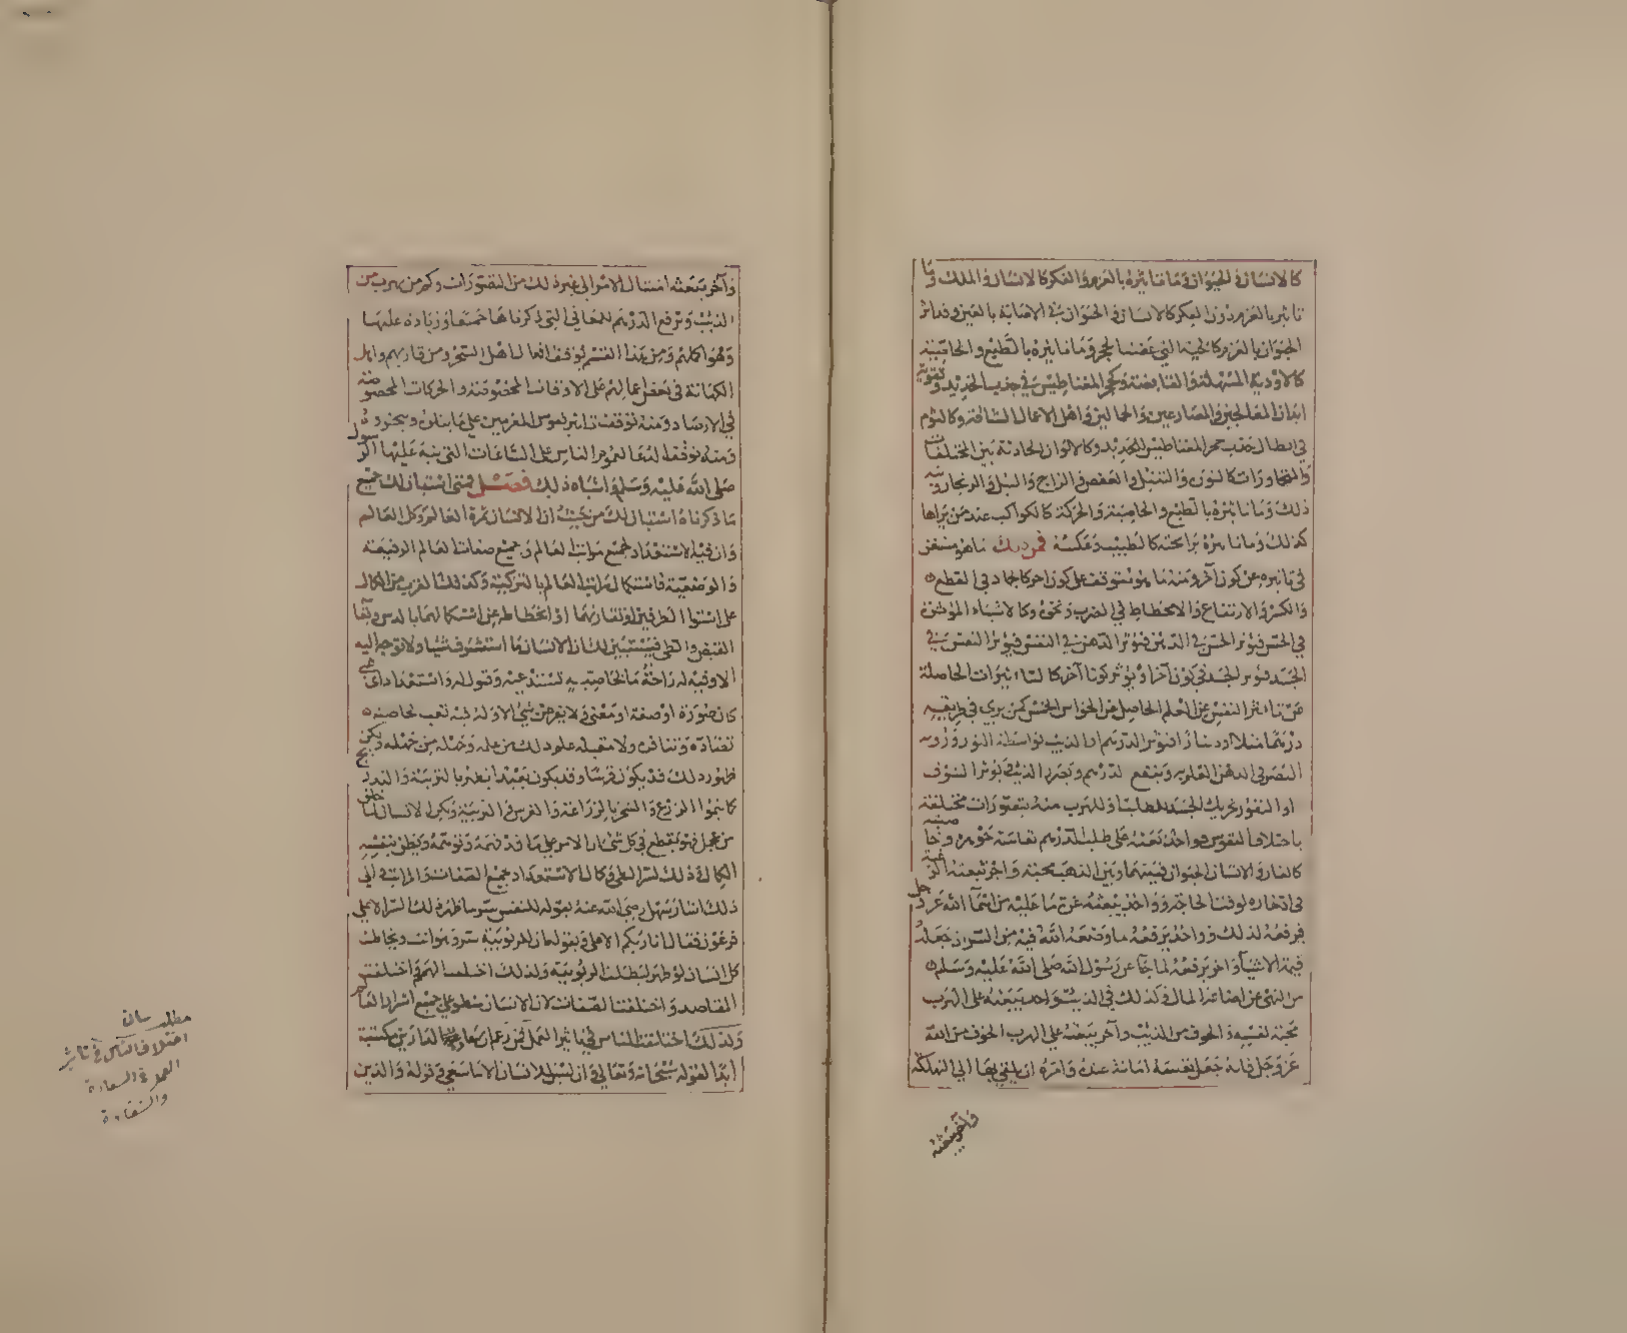 كالانسان في الحيوان وما تاثيره بالعزم والفكر كالانسان والملك وما
تاثير بالعزم دون الفكر كالانسان في الحيوان في الاصابة بالعين و
الحيوان بالعزم كالحية التي وما تاثيره بالطبع والخاصية
كالاودية المسهلة والقابضة وكحجر المغناطيس في جذب الحديد وتقوية
ابدان المعالجين والمصارعين والحمالين واهل الاعمال الشاقة وكالثوم
في ابطال جذب حجر المغناطيس الحديد وكالالوان الحادثة بين المختلفات
والمتجاورات كالنورة والعفص والزاج والنيل والزنجار وشبه
ذلك وما تاثيره بالطبع والخاصية والحركة كالكواكب عند من يراها
كذلك وما تاثيره برائحته كالطبيب وعكسه فمن ذلك ما هو مستغن
في تاثيره عن كون آخر ومنه ما هو متوقف على كون آخر كالجماد في القطع
والكسر والارتفاع والانحطاط في الضرب ونحوه وكالاشياء المؤثرة
في الحس فيؤثر الحس في الذهن فيؤثر الذهن في النفس فيؤثر النفس في
الجسد فيؤثر الجسد في كون آخر او يؤثر كونا آخر كالتاثيرات الحاصلة
عن تاثر النفس عن العلم الحاصل عن الحواس الخمس كمن يرى في طريقه
درهما مثلا او دينارا فيؤثر الدرهم او الذيب بواسطة النور ورؤية
البصر في الذهن العلم به وينفع الدرهم ويضر الذيب فيؤثر الشوق
او النفور تحريك الجسد للطلب او للهرب منه بتصورات مختلفة
باختلاف النفوس فواحد تبعثه على طلب الدرهم نفاسة جوهره وخاصيته
كالفار والانسان الحيوان فبينهما وبين الذهب محبة وآخر تبعثه الرغبة
في ادخاره لوقت الحاجة وواحد يبعثه عن ما عليه من اسماء الله عز وجل
فيرفعه لذلك وواحد يرفعه ما وضعه الله فيه من السر ان جعله
قيمة الاشياء وآخر يرفعه لما جاء عن رسول الله صلى الله عليه وسلم
من النهي عن اضاعة المال وكذلك في الذيب واحد يبعثه على الهرب
محبة لنفسه والخوف من الذيب وآخر يبعثه على الهرب الخوف من الله
عز وجل فانه جعل نفسه امانة عنده وامره ان لا يلقي بها الى التهلكة
وآخر يبعثه
وآخر يبعثه امتثال الامر الى غير ذلك من التصورات وكم من يهرب من
الذيب ويرفع الدرهم للمعاني التي ذكرناها جميعا وزيادة عليها
وهو اكملهم ومن هذا القسم توقف افعال اهل السحر ومن قاربهم واهل
الكهانة في بعض اعمالهم على الاوقات المخصوصة والحركات المخصوصة
في الارصاد ومنه توقف تاثير نفوس المغرمين على ما يتلوه ويبخروه
ومنه توقف الدعا لعموم الناس على الساعات التي نبه عليها الرسول
صلى الله عليه وسلم واشباه ذلك فصل فمتى استبان لك جميع
ما ذكرناه استبان لك من حيث ان الانسان ثمرة العالم وكل العالم
وان فيه الاستعداد لجميع مراتب العالم وجميع صفات العالم الرفيعة
والوضعية فاستكمال مراتب العالم بالتزكية وكذلك القرب من الكمال
على استواء الطرفين او تقاربهما او انحطاطه عن استكمالهما بالدس وبقاء
القبض والطي فيتبين لك ان الانسان ما استشرف شيئا ولا توجه اليه
الا وفيه له راحة ما خاصية به تستدعيه وقوله واستعداد اي شيء
كان صورة او صفة او معنى ولا نفر عن شيء الا وله فيه تعب بخاصية
تضاده وتنافره ولا متقبله علم ذلك من علمه وجهله من جهله ولكن
ظهور ذلك قد يكون قريبا وقد يكون بعيدا يفتقر بالتربية والتدريج
كما ينمو الزرع والشجر بالزراعة والغرس والتربية ولكن الانسان لما خلق
من عجل فهو يقطع في كل شيء الامر على ما قد فهمه وتوهمه ويظن بنفسه
الكمال وذلك لسر العلي وكمال الاستعداد جميع الصفات والمراتب والى
ذلك اشار سهل رضي الله عنه بقوله للنفس سر ما ظهر ذلك السر الا على
فرعون فقال انا ربكم الاعلى وبقوله ان للربوبية سر وهو انت ويخاطب
كل انسان لو ظهر لبطلت الربوبية ولذلك اختلفت الهمم واختلفت
المقاصد واختلفت الصفات لان الانسان منطو على جميع اسرار العالم
ولذلك اختلفت الناس في تاثير العمل فمن زعم ان سعادة الدارين مكتسبة
ابدا لقوله سبحانه وتعالى وان ليس للانسان الا ما سعى وقوله والذين
مطلب بيان
اختلاف الناس في تاثير
العمل في السعادة
والشقاوة